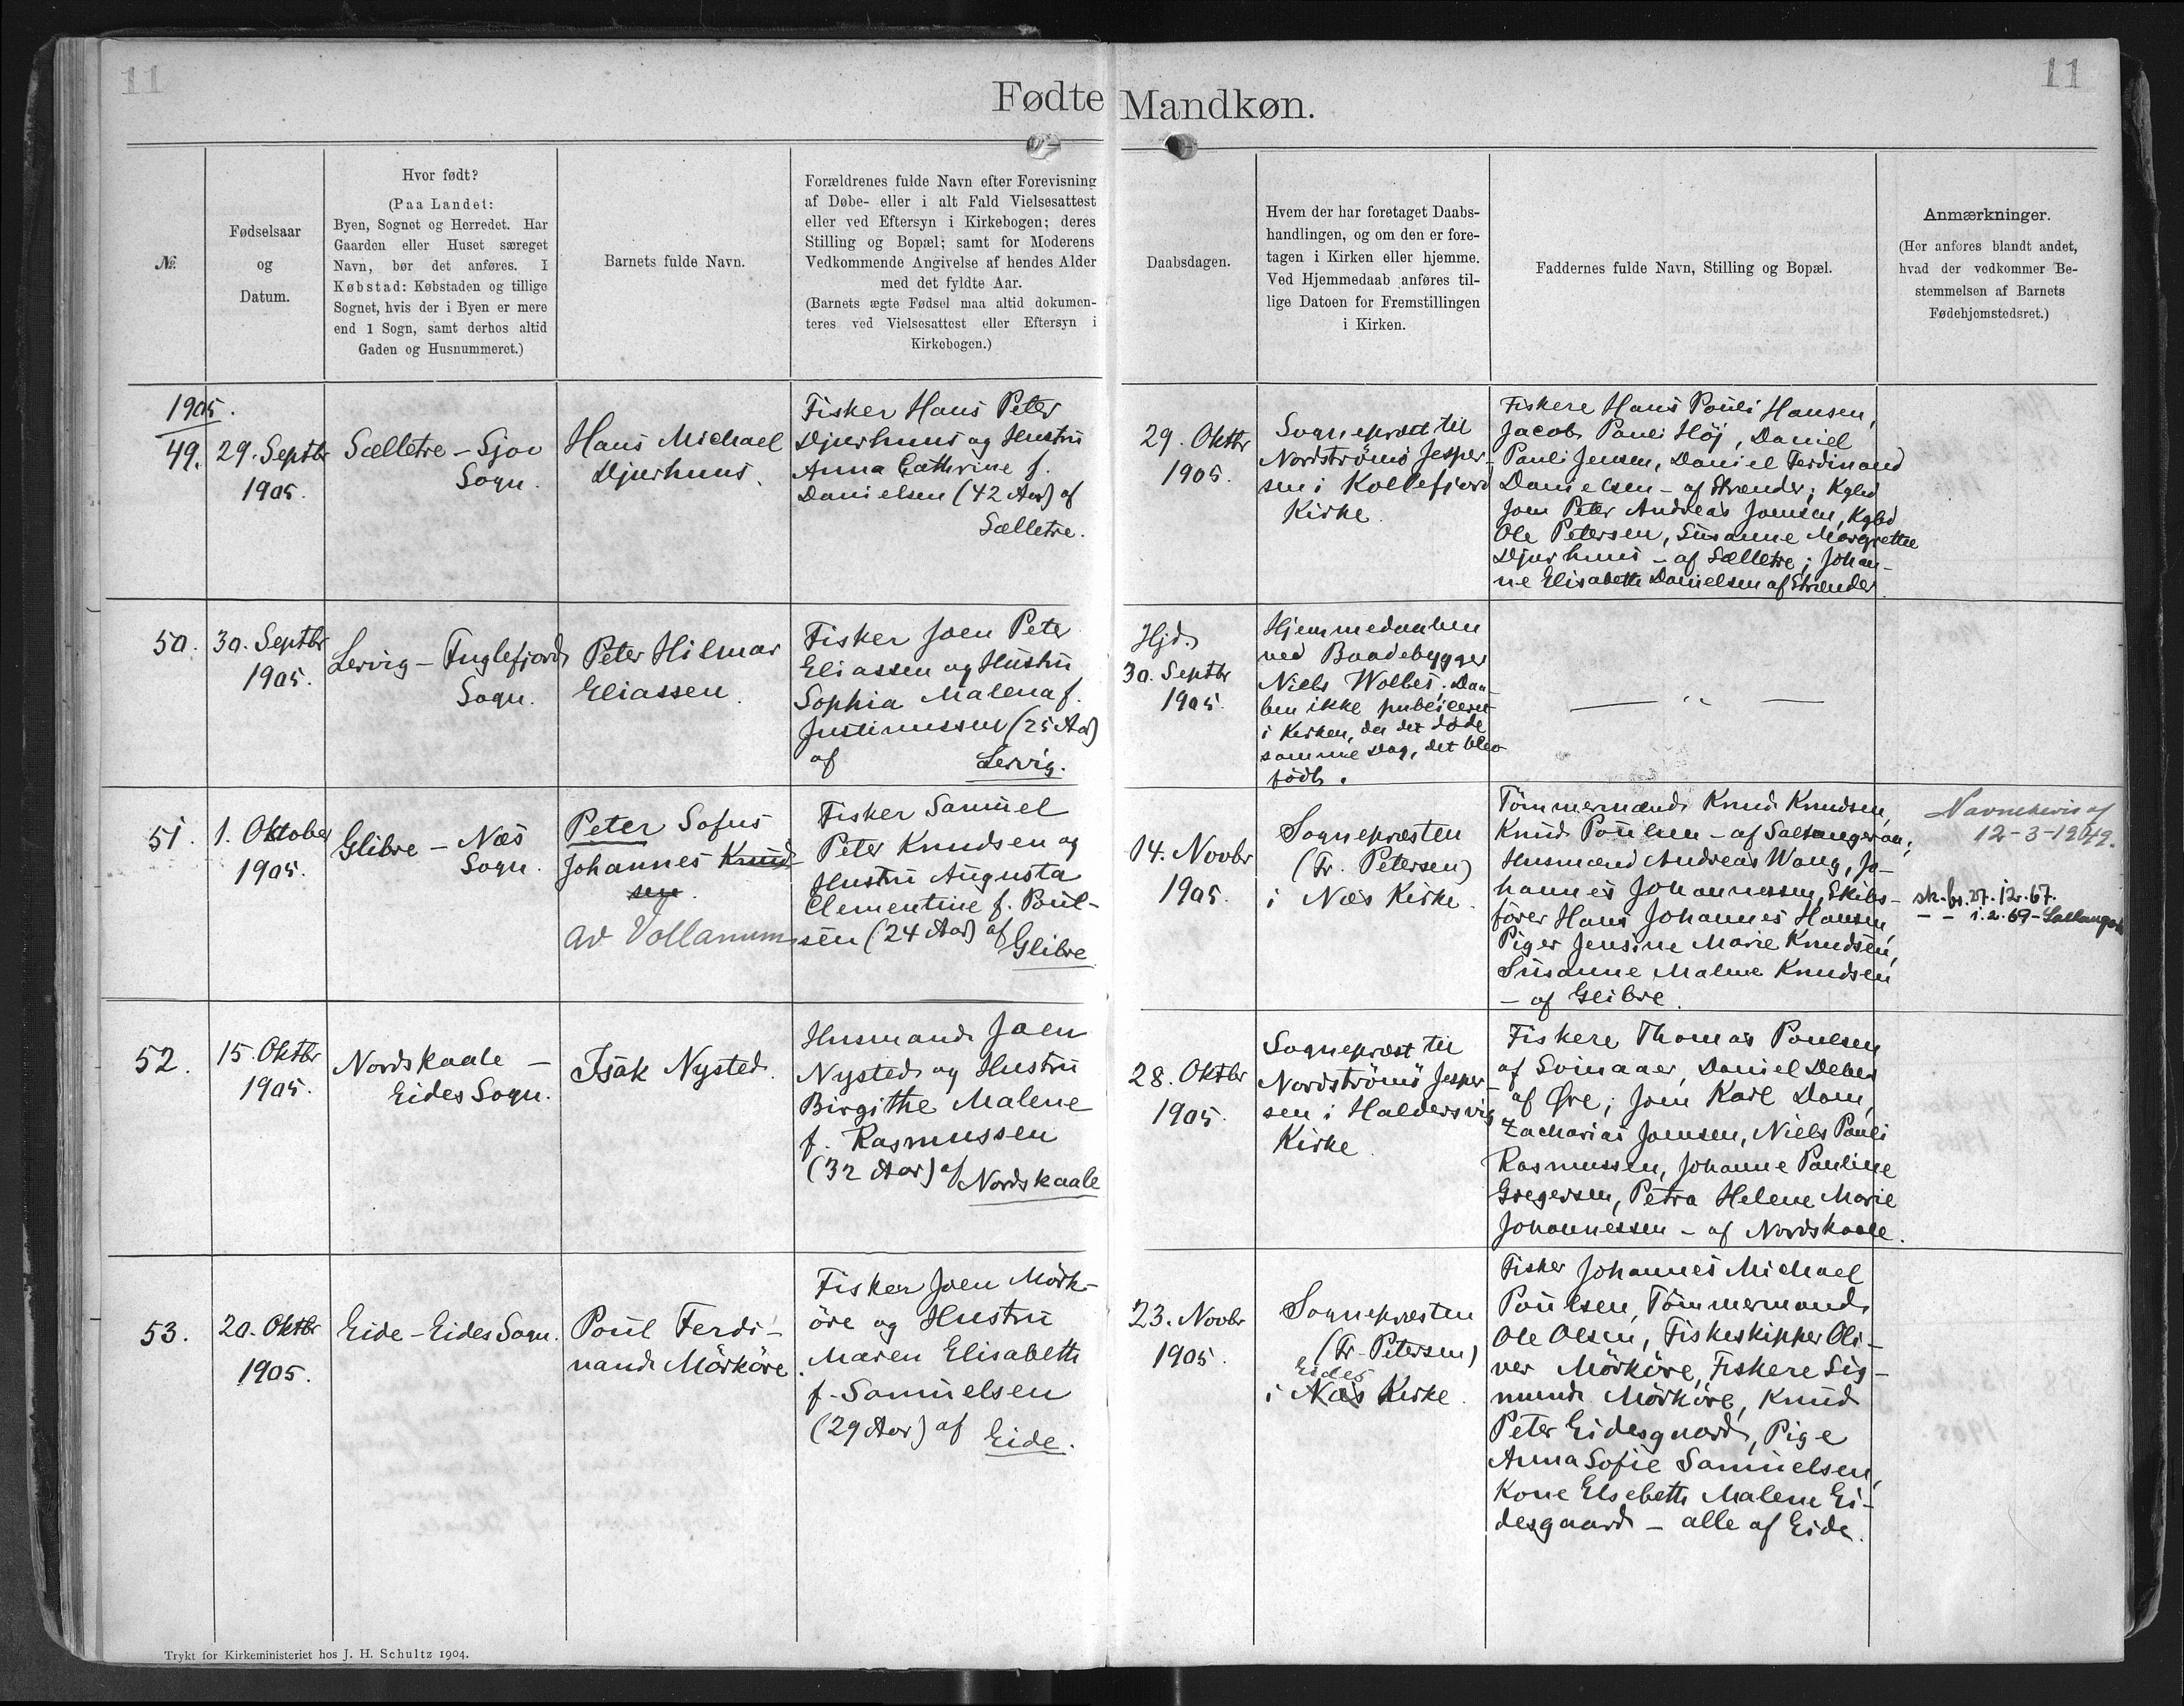 11
11
Fødte Mandkøn.
№
Fødselsaar
og
Datum.
Hvor født?
(Paa Landet:
Byen, Sognet og Herredet. Har
Gaarden eller Huset særeget
Navn, bør det anføres. I
Købstad: Købstaden og tillige
Sognet, hvis der i Byen er mere
end 1 Sogn, samt derhos altid
Gaden og Husnummeret.)
Barnets fulde Navn.
Forældrenes fulde Navn efter Forevisning
af Døbe- eller i alt Fald Vielsesattest
eller ved Eftersyn i Kirkebogen; deres
Stilling og Bopæl; samt for Moderens
Vedkommende Angivelse af hendes Alder
med det fyldte Aar.
(Barnets ægte Fødsel maa altid dokumen-
teres ved Vielsesattest eller Eftersyn i
Kirkebogen.)
Daabsdagen.
Hvem der har foretaget Daabs-
handlingen, og om den er fore-
tagen i Kirken eller hjemme.
Ved Hjemmedaab anføres til-
lige Datoen for Fremstillingen
i Kirken.
Faddernes fulde Navn, Stilling og Bopæl.
Anmærkninger.
(Her anføres blandt andet,
hvad der vedkommer Be-
stemmelsen af Barnets
Fødehjemstedsret.)
1905.
49.
29. Septbr
1905.
Sælletre - Sjov
Sogn.
Hans Michael
Djurhuus.
Fisker Hans Peter
Djurhuus og Hustru
Anna Cathrine f.
Danielsen (42 Aar) af
Sælletre.
29. Oktbr
1905.
Sognepræst til
Nordströmö Jesper-
sen i Kollefjord
Kirke.
Fiskere Hans Pouli Hansen,
Jacob Pauli Höj, Daniel
Pauli Jensen, Daniel Ferdinand
Danielsen - af Strænder; Kgbd
Joen Peter Andreas Joensen, Kgbd
Ole Petersen, Susanne Margrethe
Djurhuus - af Sælletre; Johan-
ne Elisabeth Danielsen af Strænder.
50.
30. Septbr
1905.
Lervig - Fuglefjord
Sogn.
Peter Hilmar
Eliassen.
Fisker Joen Peter
Eliassen og Hustru
Sophia Malena f.
Justinussen (25 Aar)
af Lervig.
Hjd.
30. Septbr
1905.
Hjemmedaaben
ved Baadebygger
Niels Wolles; Daa-
ben ikke publiceret
i Kirken, da det døde
samme Dag, det blev
født.
— " —
51.
1. Oktober
1905.
Glibre - Næs
Sogn.
Peter Sofus
Johannes Knud-
sen.
av Vollanum
Fisker Samuel
Peter Knudsen og
Hustru Augusta
Clementine f. Poul-
sen (24 Aar) af
Glibre.
14. Novbr
1905.
Sognepræsten
(Fr. Petersen)
i Næs Kirke.
Tömmermænd Knud Knudsen,
Knud Poulsen - af Saltangeraa;
Husmænd Andreas Wang, Jo-
hannes Johannessen, Skibs-
förer Hans Johannes Hansen,
Piger Jensine Marie Knudsen,
Susanne Malene Knudsen
- af Glibre.
Navnebevis af
12-3-1949.
sk. br. 27.12.67.
- - 1.2.69 -
52.
15. Oktbr
1905.
Nordskaale -
Eides Sogn.
Isak Nysted.
Husmand Joen
Nysted og Hustru
Birgithe Malene
f. Rasmussen
(32 Aar) af
Nordskaale
28. Oktbr
1905.
Sognepræst til
Nordströmö Jesper-
sen i Haldersvig
Kirke.
Fiskere Thomas Poulsen
af Svinaaer, Daniel Debes
af Öre; Joen Karl Dam,
Zacharias Joensen, Niels Pauli
Rasmussen, Johanne Pauline
Gregersen, Petra Helene Marie
Johannessen - af Nordskaale.
53.
20. Oktbr
1905.
Eide - Eides Sogn.
Poul Ferdi-
nand Mörköre.
Fisker Joen Mörk-
öre og Hustru
Maren Elisabeth
f. Samuelsen
(29 Aar) af
Eide.
23. Novbr
1905.
Sognepræsten
(Fr. Petersen)
Eides
i Næs Kirke.
Fisker Johannes Michael
Poulsen, Tömmermand
Ole Olsen, Fiskeskipper Oli-
ver Mörköre, Fiskere Sig-
mund Mörköre, Knud
Peter Eidesgaard, Pige
Anna Sofie Samuelsen,
Kone Elsebeth Malene Ei-
desgaard - alle af Eide.
Trykt for Kirkeministeriet hos J. H. Schultz 1904.